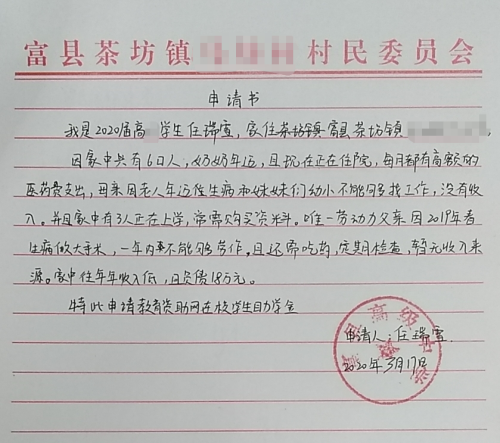 富县茶坊镇 村民委员会
申请书
我是2020届高 学生任瑞雪,家住茶坊镇富县茶坊镇
因家中共有6口人,奶奶年迈,且现在正在住院,每月都有高额的
医药费支出,母亲因老人年迈住生病和妹妹们幼小不能够找工作,没有收
入。并且家中有3人正在上学,常需购买资料。唯一劳动力父亲因2019年春
生病做大手术,一年内要不能够劳作。且还需吃药,定期检查,暂无收入来
源。家中往年年收入低,且负债18万元。
特此申请教育资助网在校学生助学金
申请人:任瑞雪
2020年3月17日
高级中学